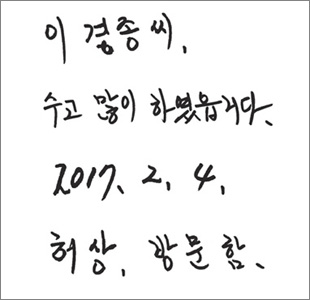 이 경종씨,
수고 많이 하였읍니다.
2017. 2. 4.
허상, 방문함.